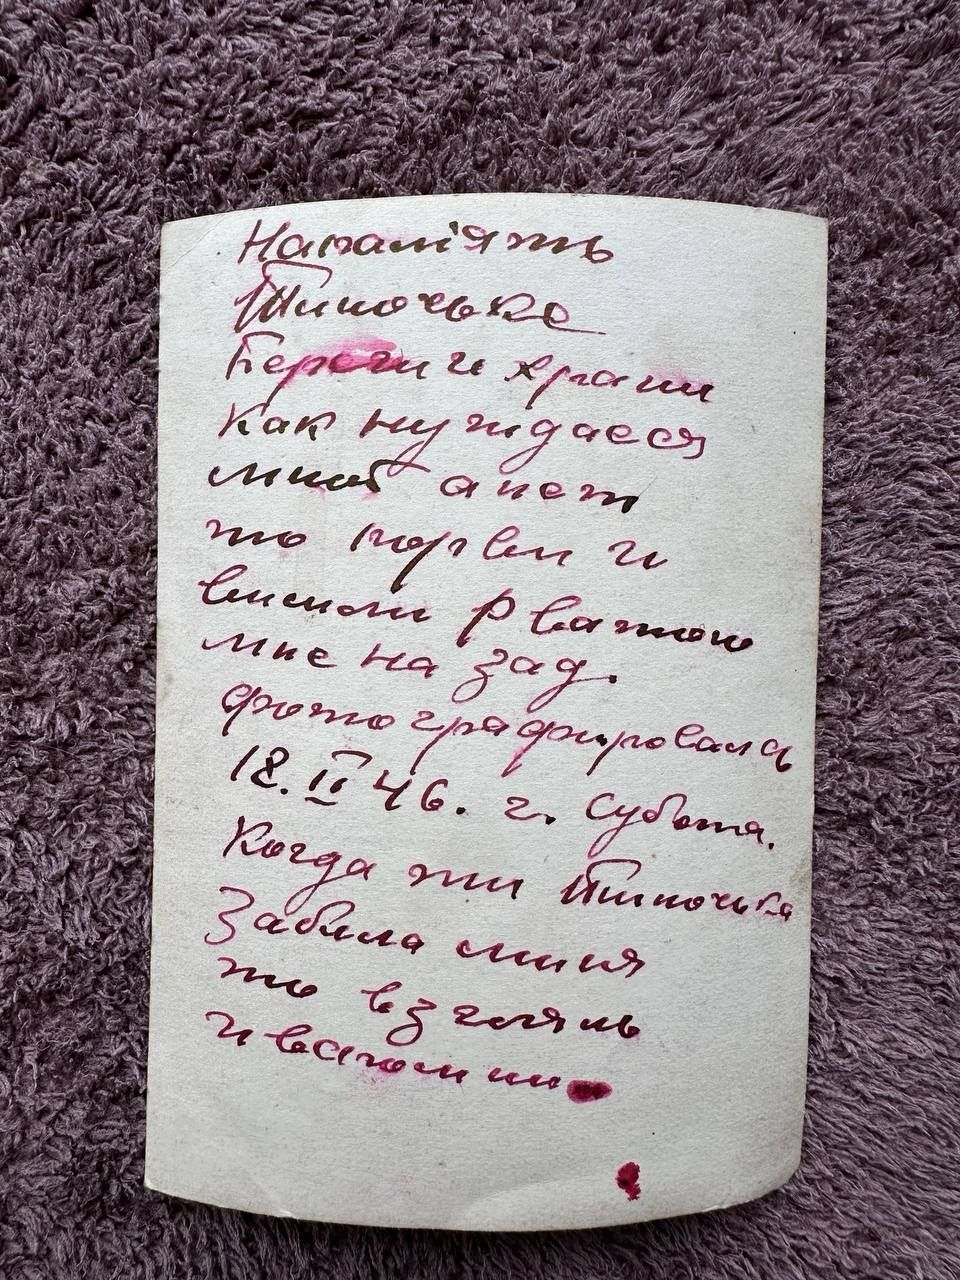 Напамiять
Тиночьке
Береги и храни
как нуждаеся
мной а нет
то порви и
вишли рватою
мне на зад.
фотографировалась
18. II 46. г. субота.
Когда ти Тиночька
Забила миня
то взглянь
и вспомни